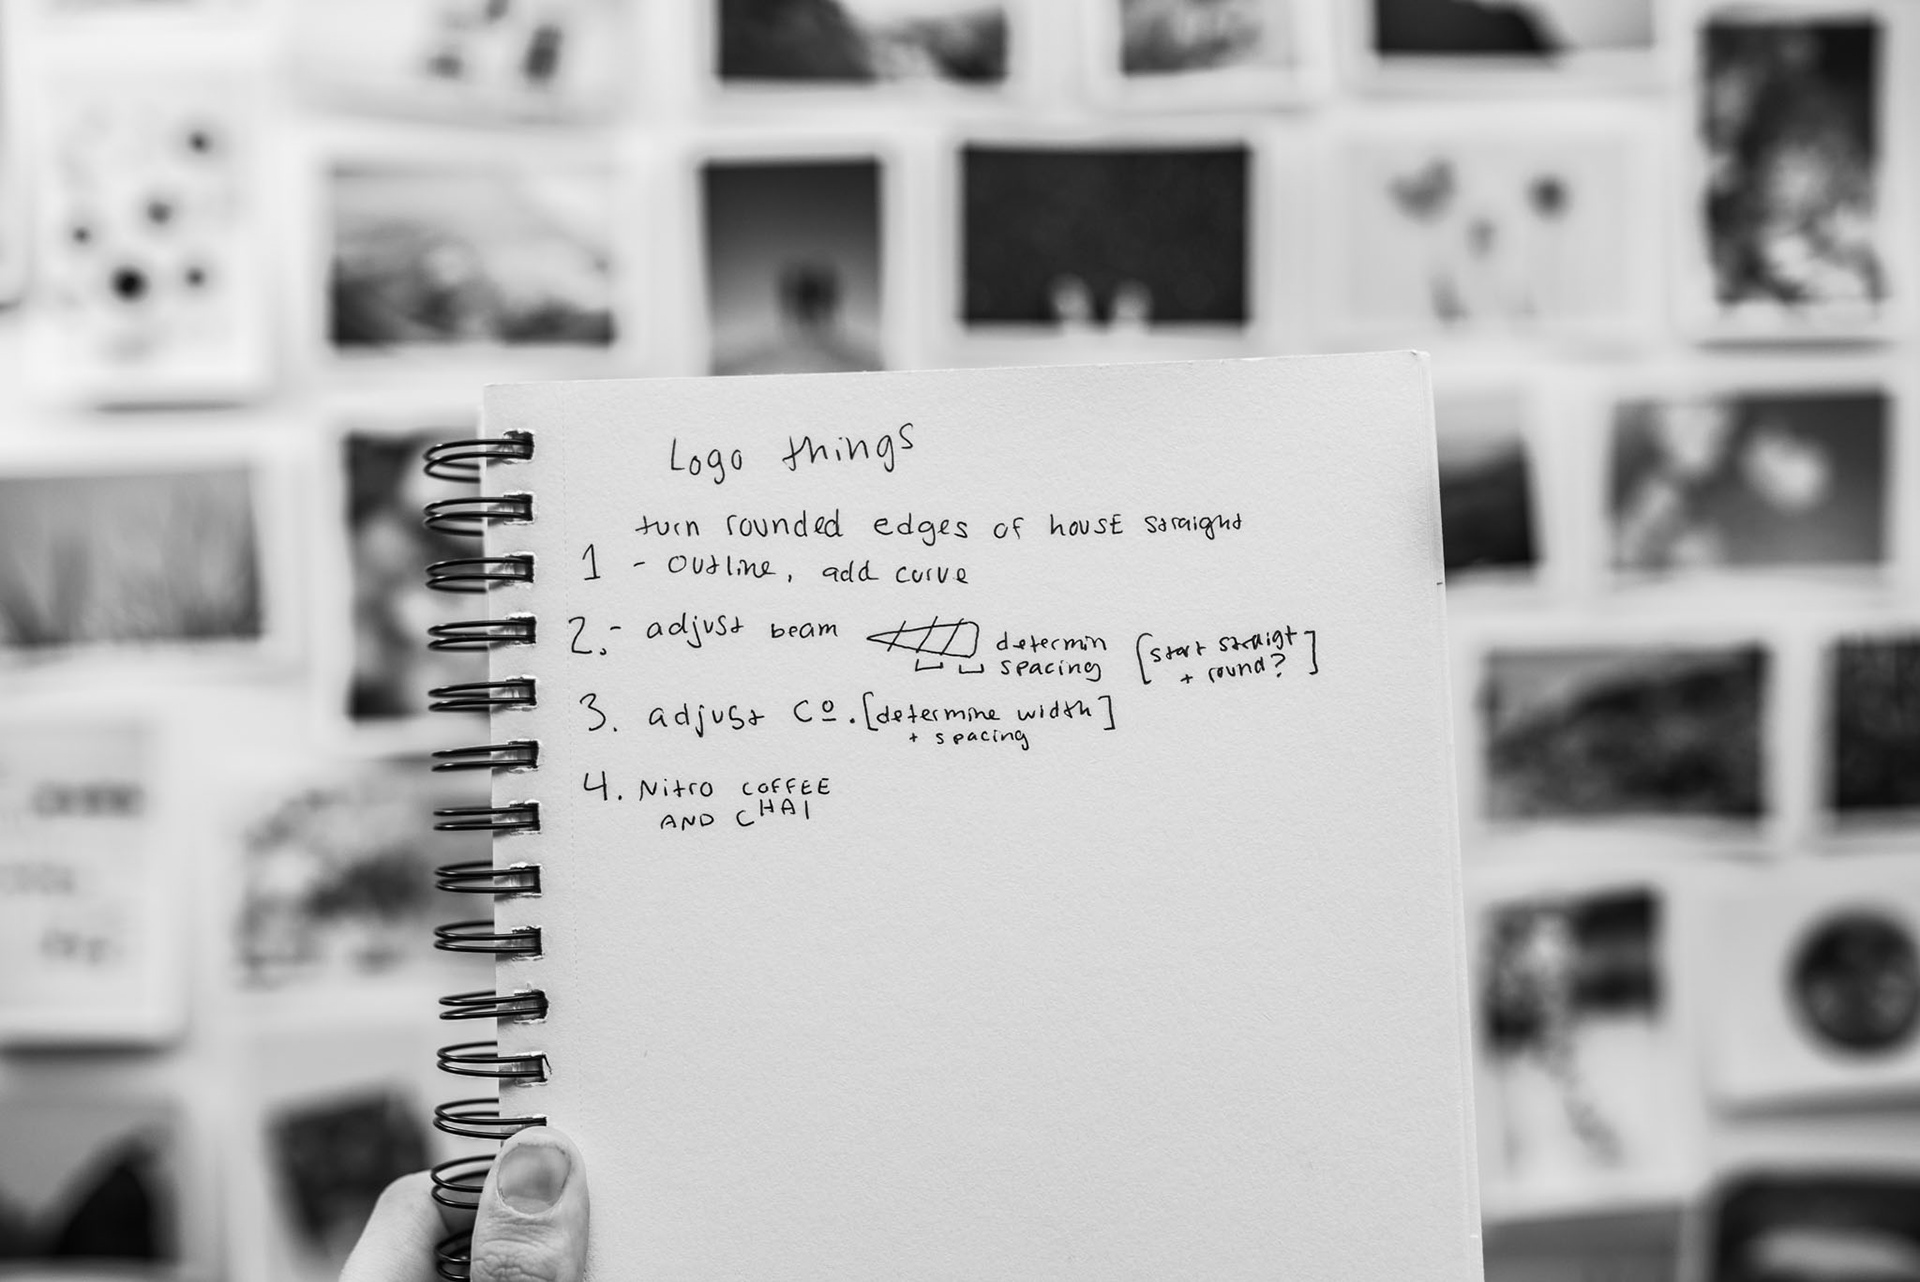 Logo things
turn rounded edges of house straight
1 - outline, add curve
2.- adjust beam determin spacing [start straigt + round?]
3. adjust Cº. [determine width]
+ spacing
4. Nitro COFFEE
AND CHAI